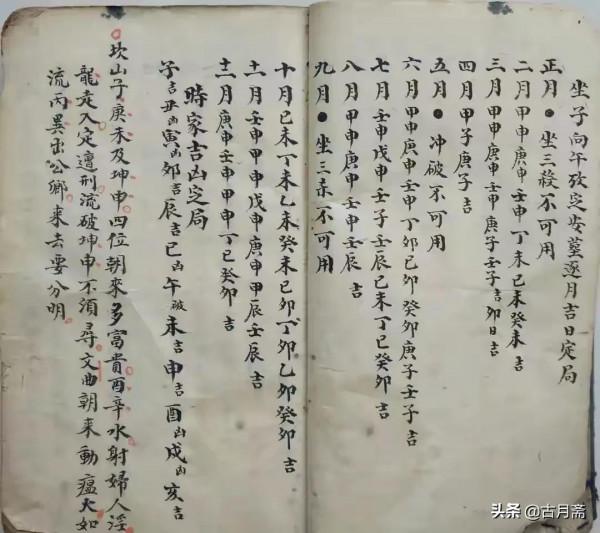 坐子向午攷定安墓逐月吉日定局
正月●坐三殺不可用
二月甲申庚申壬申丁未己未癸未吉
三月甲申庚申壬申庚子壬子吉卯日吉
四月甲子庚子吉
五月●冲破不可用
六月甲申庚申壬申丁卯己卯癸卯庚子壬子吉
七月壬申戊申壬子壬辰己未丁巳癸卯吉
八月甲申庚申壬申壬辰吉
九月●坐三赤不可用
十月己未丁未乙未癸未己卯丁卯乙卯癸卯吉
十一月壬申甲申戊申庚申甲辰壬辰吉
十二月庚申壬申甲申丁巳癸卯吉
時家吉凶定局
子吉丑凶寅凶卯吉辰吉巳凶午破未吉申吉酉凶戌凶亥吉
坎山子庚未及坤申四位朝來多富貴酉辛水射婦人淫
龍走入定遭刑流破坤申不須尋文曲朝來動瘟火如
流丙異出公卿來去要分明
头条@古月斋